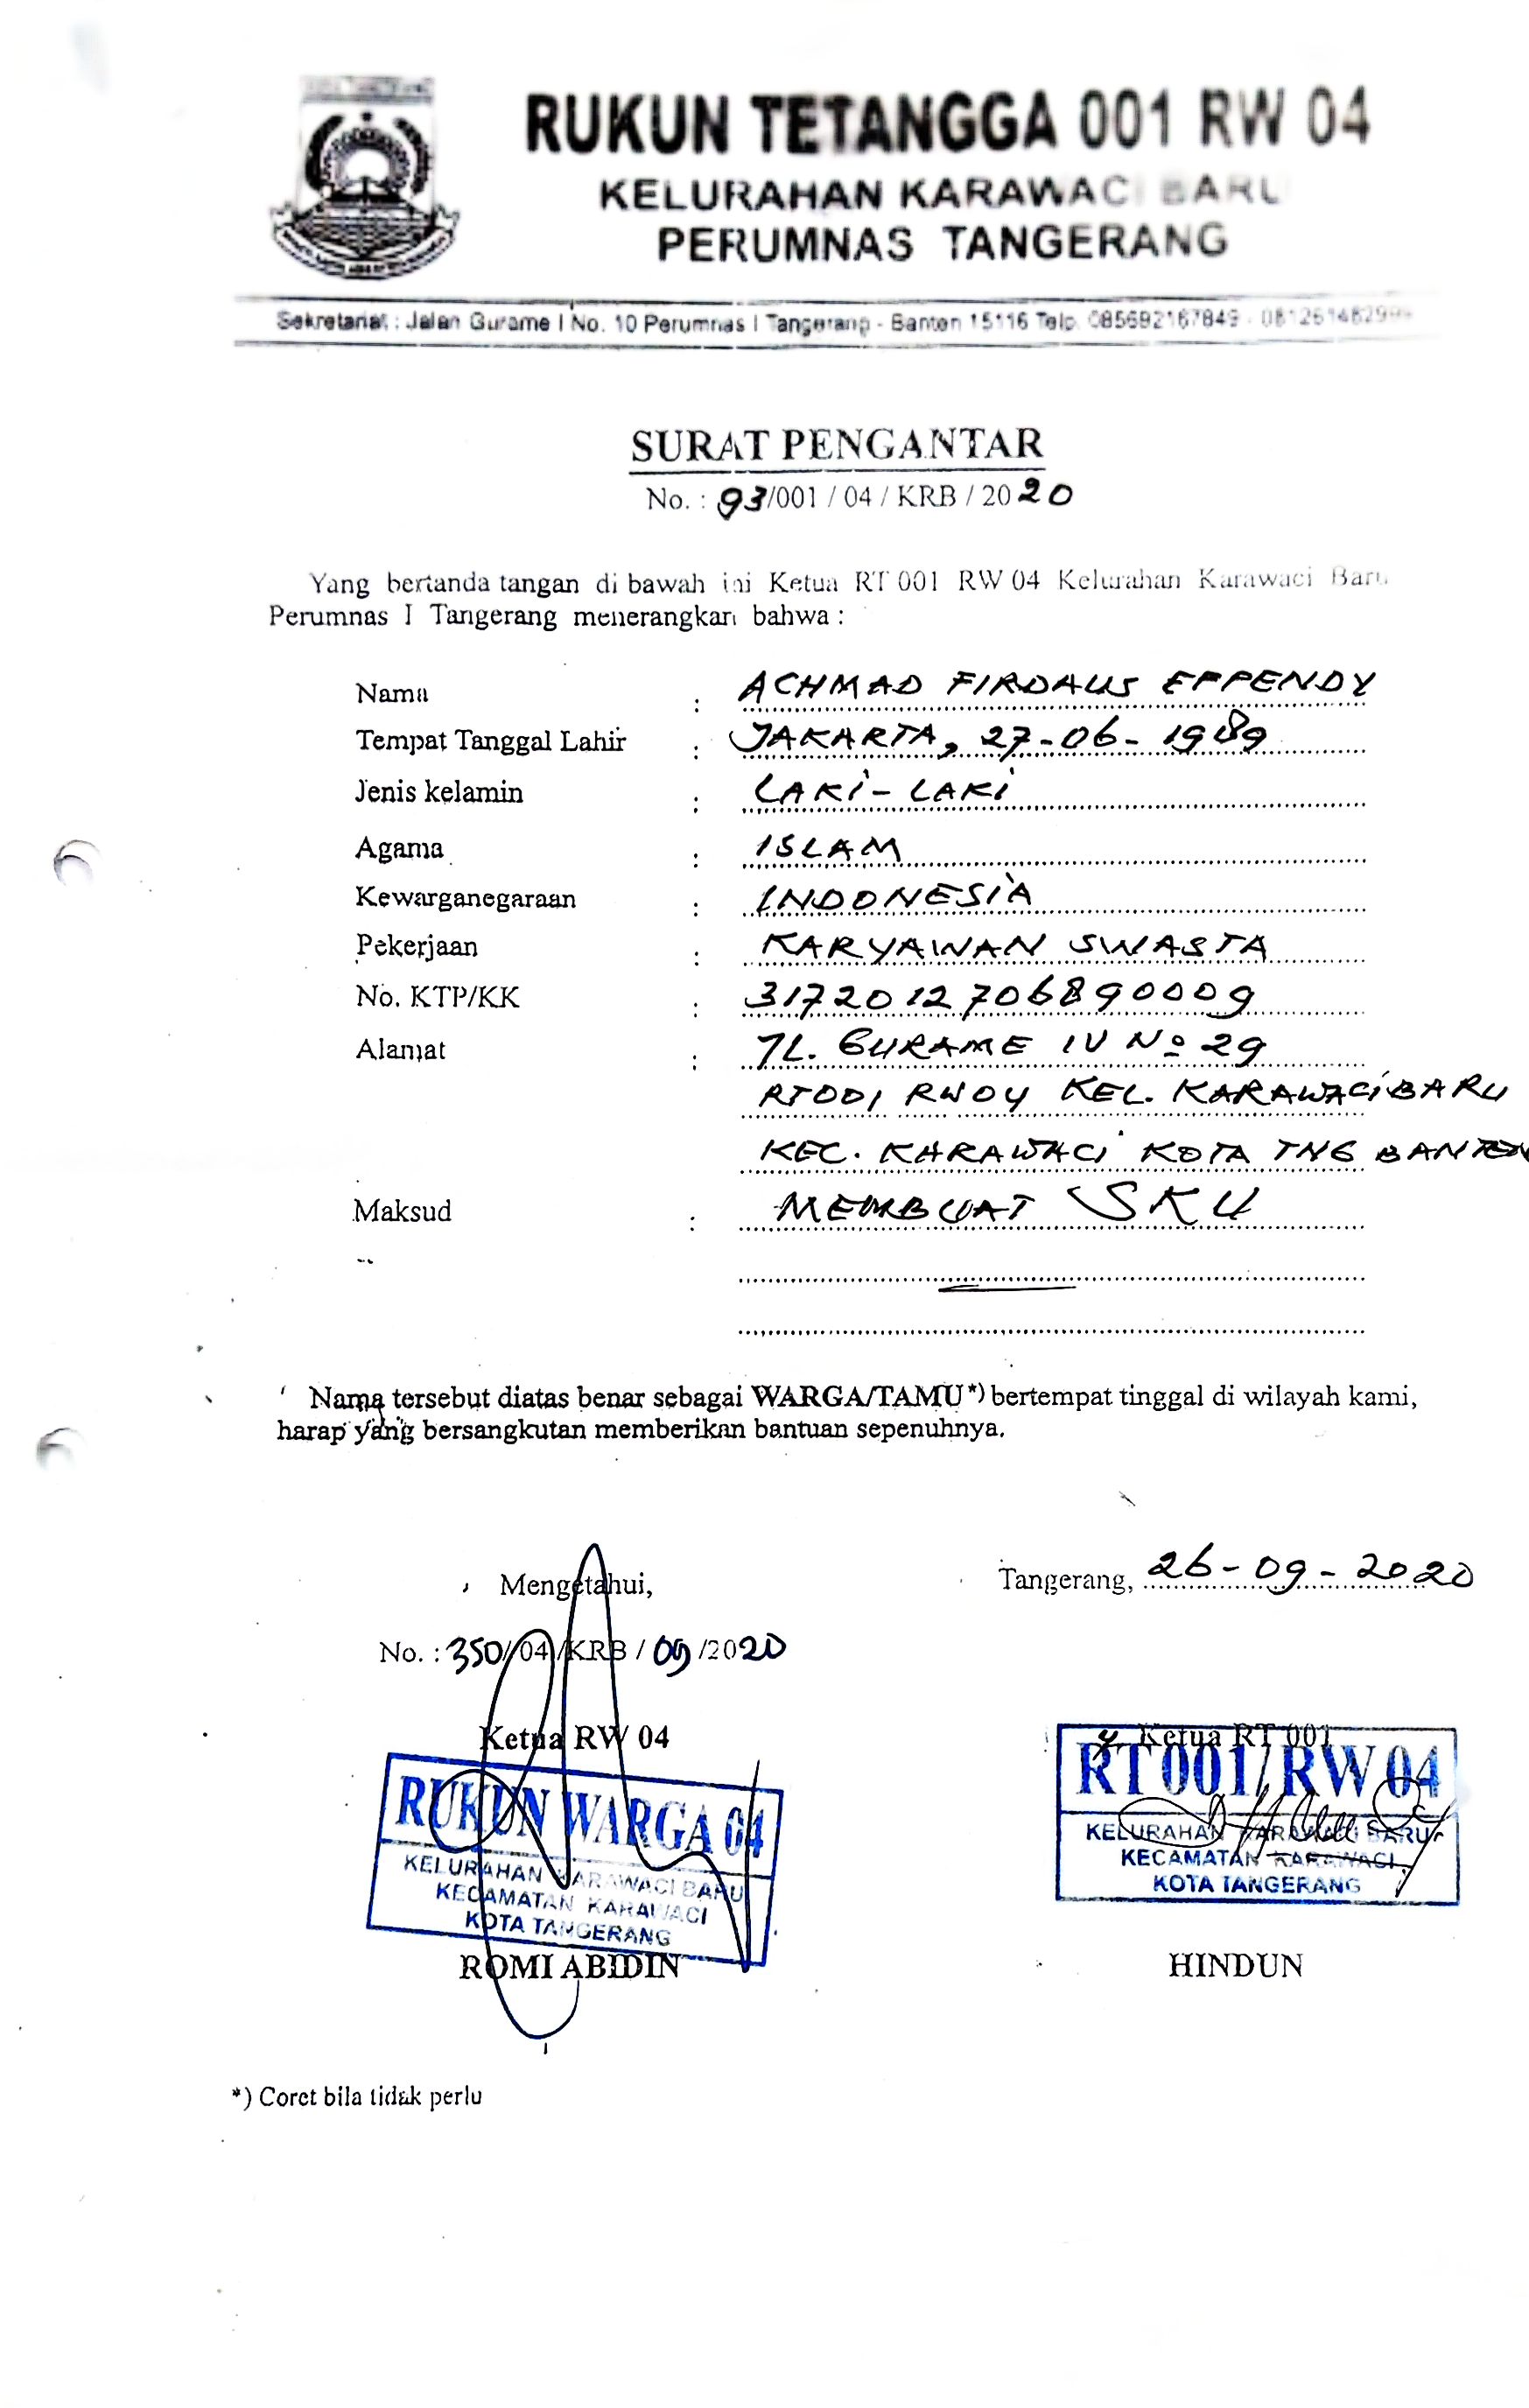 RUKUN TETANGGA 001 RW 04
KELURAHAN KARAWACI BARU
PERUMNAS TANGERANG
Sekretariat : Jalan Gurame I No. 10 Perumnas I Tangerang - Banten 15116 Telp. 085692167849 -
SURAT PENGANTAR
No. : 93/001 / 04 / KRB / 2020
Yang bertanda tangan di bawah ini Ketua RT 001 RW 04 Kelurahan Karawaci Baru
Perumnas I Tangerang menerangkan bahwa :
Nama : ACHMAD FIRDAUS EFFENDY
Tempat Tanggal Lahir : JAKARTA, 27-06-1989
Jenis kelamin : LAKI-LAKI
Agama : ISLAM
Kewarganegaraan : INDONESIA
Pekerjaan : KARYAWAN SWASTA
No. KTP/KK : 3172012706890009
Alamat : JL. GURAME IV No 29
RT001 RW04 KEL. KARAWACI BARU
KEC. KARAWACI KOTA TNG BANTEN
Maksud : MEMBUAT SKU
Nama tersebut diatas benar sebagai WARGA/TAMU*) bertempat tinggal di wilayah kami,
harap yang bersangkutan memberikan bantuan sepenuhnya.
Mengetahui,
Tangerang, 26-09-2020
No. : 350/04/KRB / 09 /2020
Ketua RW 04
Ketua RT 001
RUKUN WARGA 04
KELURAHAN KARAWACI BARU
KECAMATAN KARAWACI
KOTA TANGERANG
RT 001/RW 04
KELURAHAN KARAWACI BARU
KECAMATAN KARAWACI
KOTA TANGERANG
ROMI ABIDIN
HINDUN
*) Coret bila tidak perlu